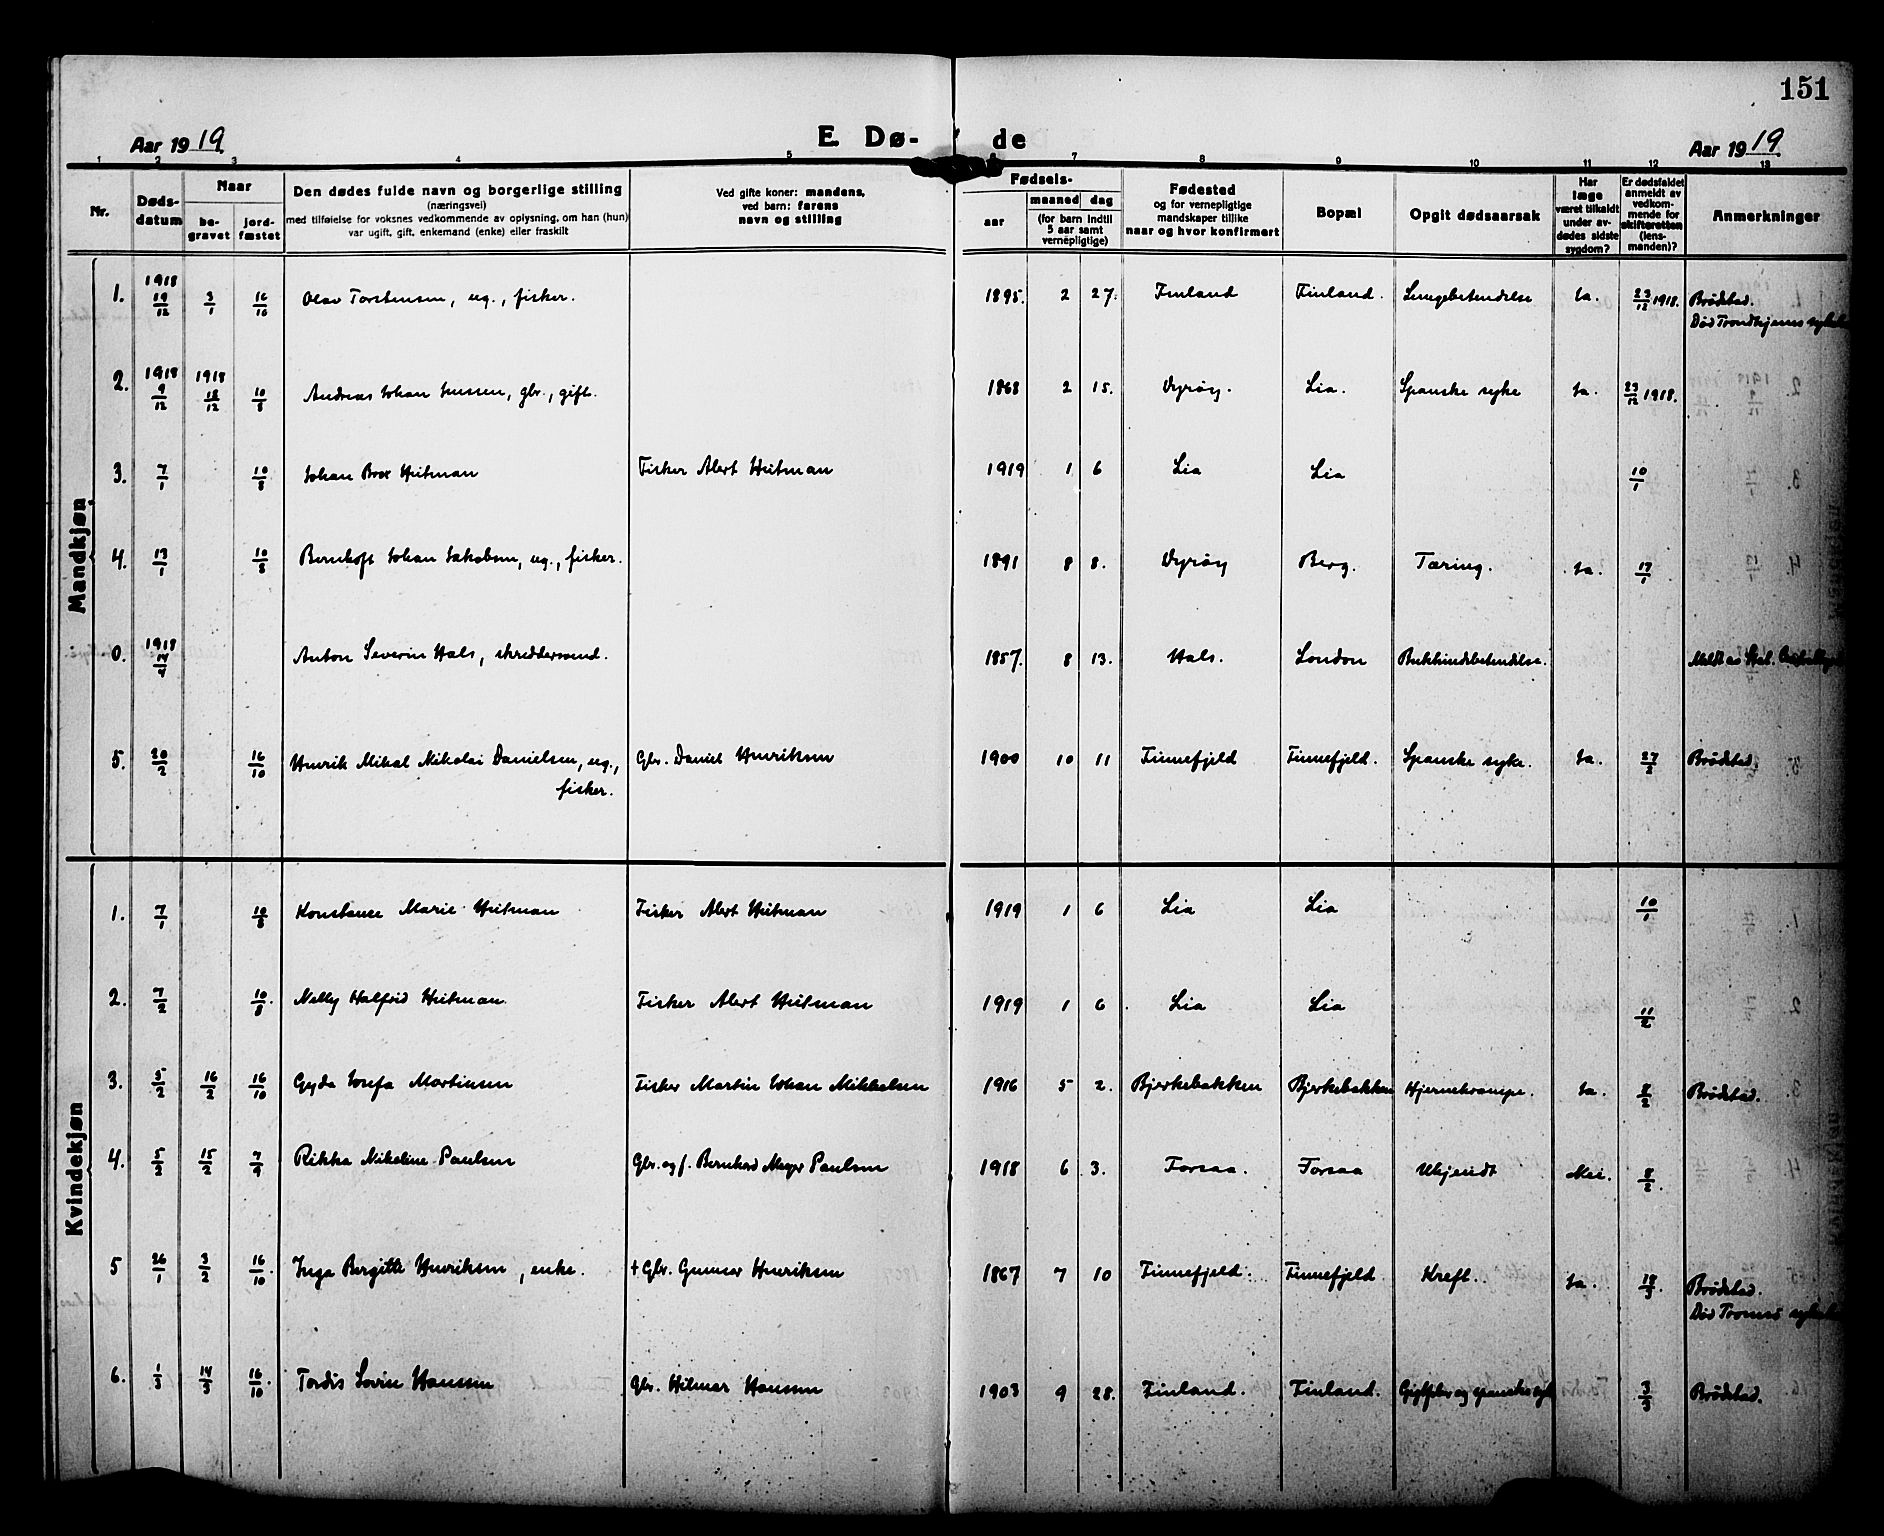 151
Aar 1919.
E. Dø-
de
Aar 1919
1 2 3 4 5 7 8 9 10 11 12 13
Nr.
Døds-
datum
Naar
be-
gravet
jord-
fæstet
Den dødes fulde navn og borgerlige stilling
(næringsvei)
med tilføielse for voksnes vedkommende av oplysning, om han (hun)
var ugift, gift, enkemand (enke) eller fraskilt
Ved gifte koner: mandens,
ved barn: farens
navn og stilling
Fødsels-
aar
maaned dag
(for barn indtil
5 aar samt
vernepligtige)
Fødested
og for vernepligtige
mandskaper tillike
naar og hvor konfirmert
Bopæl
Opgit dødsaarsak
Har
læge
været tilkaldt
under av-
dødes sidste
sygdom?
Er dødsfaldet
anmeldt av
vedkom-
mende for
skifteretten
(lens-
manden)?
Anmerkninger
Mandkjøn
1. 1918 19/12 3/1 16/10 Olav Torstensen, ug., fisker. 1895. 2 27. Finland Finland. Lungebetendelse Ja. 23/12 1918. Brødstad.
Død Trondhjems
2. 1918 9/12 1918 18/12 10/8 Andreas Johan Jenssen, gbr., gift. 1868 2 15. Dyrøy. Lia. Spanske syke Ja. 23/12 1918.
3. 7/1 10/8 Johan Brox Heitman Fisker Alert Heitman 1919 1 6 Lia Lia 10/1
4. 13/1 10/8 Bernhoft Johan Jakobsen, ug., fisker. 1891 8 8. Dyrøy Berg. Tæring. Ja. 17/1
0. 1918 14/4 Anton Severin Hals, skreddersvend. 1857. 8 13. Hals. London Bukhindebetendelse.
5. 20/2 16/10 Henrik Mikal Nikolai Danielsen, ug.,
fisker. Gbr. Daniel Henriksen 1900 10 11 Finnefjeld Finnefjeld. Spanske syke. Ja. 27/2 Brødstad.
Kvindekjøn
1. 7/1 10/8 Konstance Marie Heitman Fisker Alert Heitman 1919 1 6 Lia Lia 10/1
2. 7/2 10/8. Nelly Halfrid Heitman. Fisker Alert Heitman 1919 1 6 Lia Lia 11/2
3. 5/2 16/2 16/10 Gyda Josefa Martinsen Fisker Martin Johan Mikkelsen 1916 5 2. Bjerkebakken Bjerkebakken Hjernekrampe. Ja. 8/2 Brødstad.
4. 5/2 15/2 7/9 Rikka Nikoline Paulsen Gbr. og f. Bernhard Meyer Paulsen 1918 6 3. Forsaa. Forsaa Ukjendt Nei. 8/2.
5 26/1 3/2 16/10. Inga Bergitte Henriksen, enke. + Gbr. Gunnar Henriksen 1867 7 10 Finnefjeld. Finnefjeld Kreft. Ja. 18/3. Brødstad.
Død Tromsø
6. 1/3 14/3 16/10. Tordis Lovise Hanssen Gbr. Hilmar Hanssen 1903 9 28. Finland. Finland. Gigtfeber og spanske syke 3/3 Brødstad.